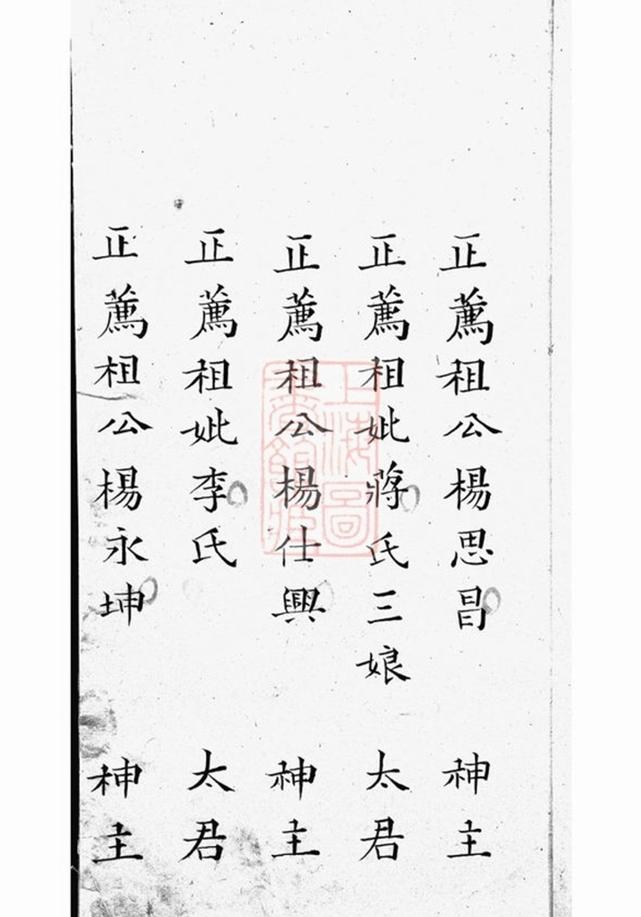 正薦祖公楊思昌 神主
正薦祖妣蔣氏三娘 太君
正薦祖公楊仕興 神主
正薦祖妣李氏 太君
正薦祖公楊永坤 神主
上海圖
書館藏